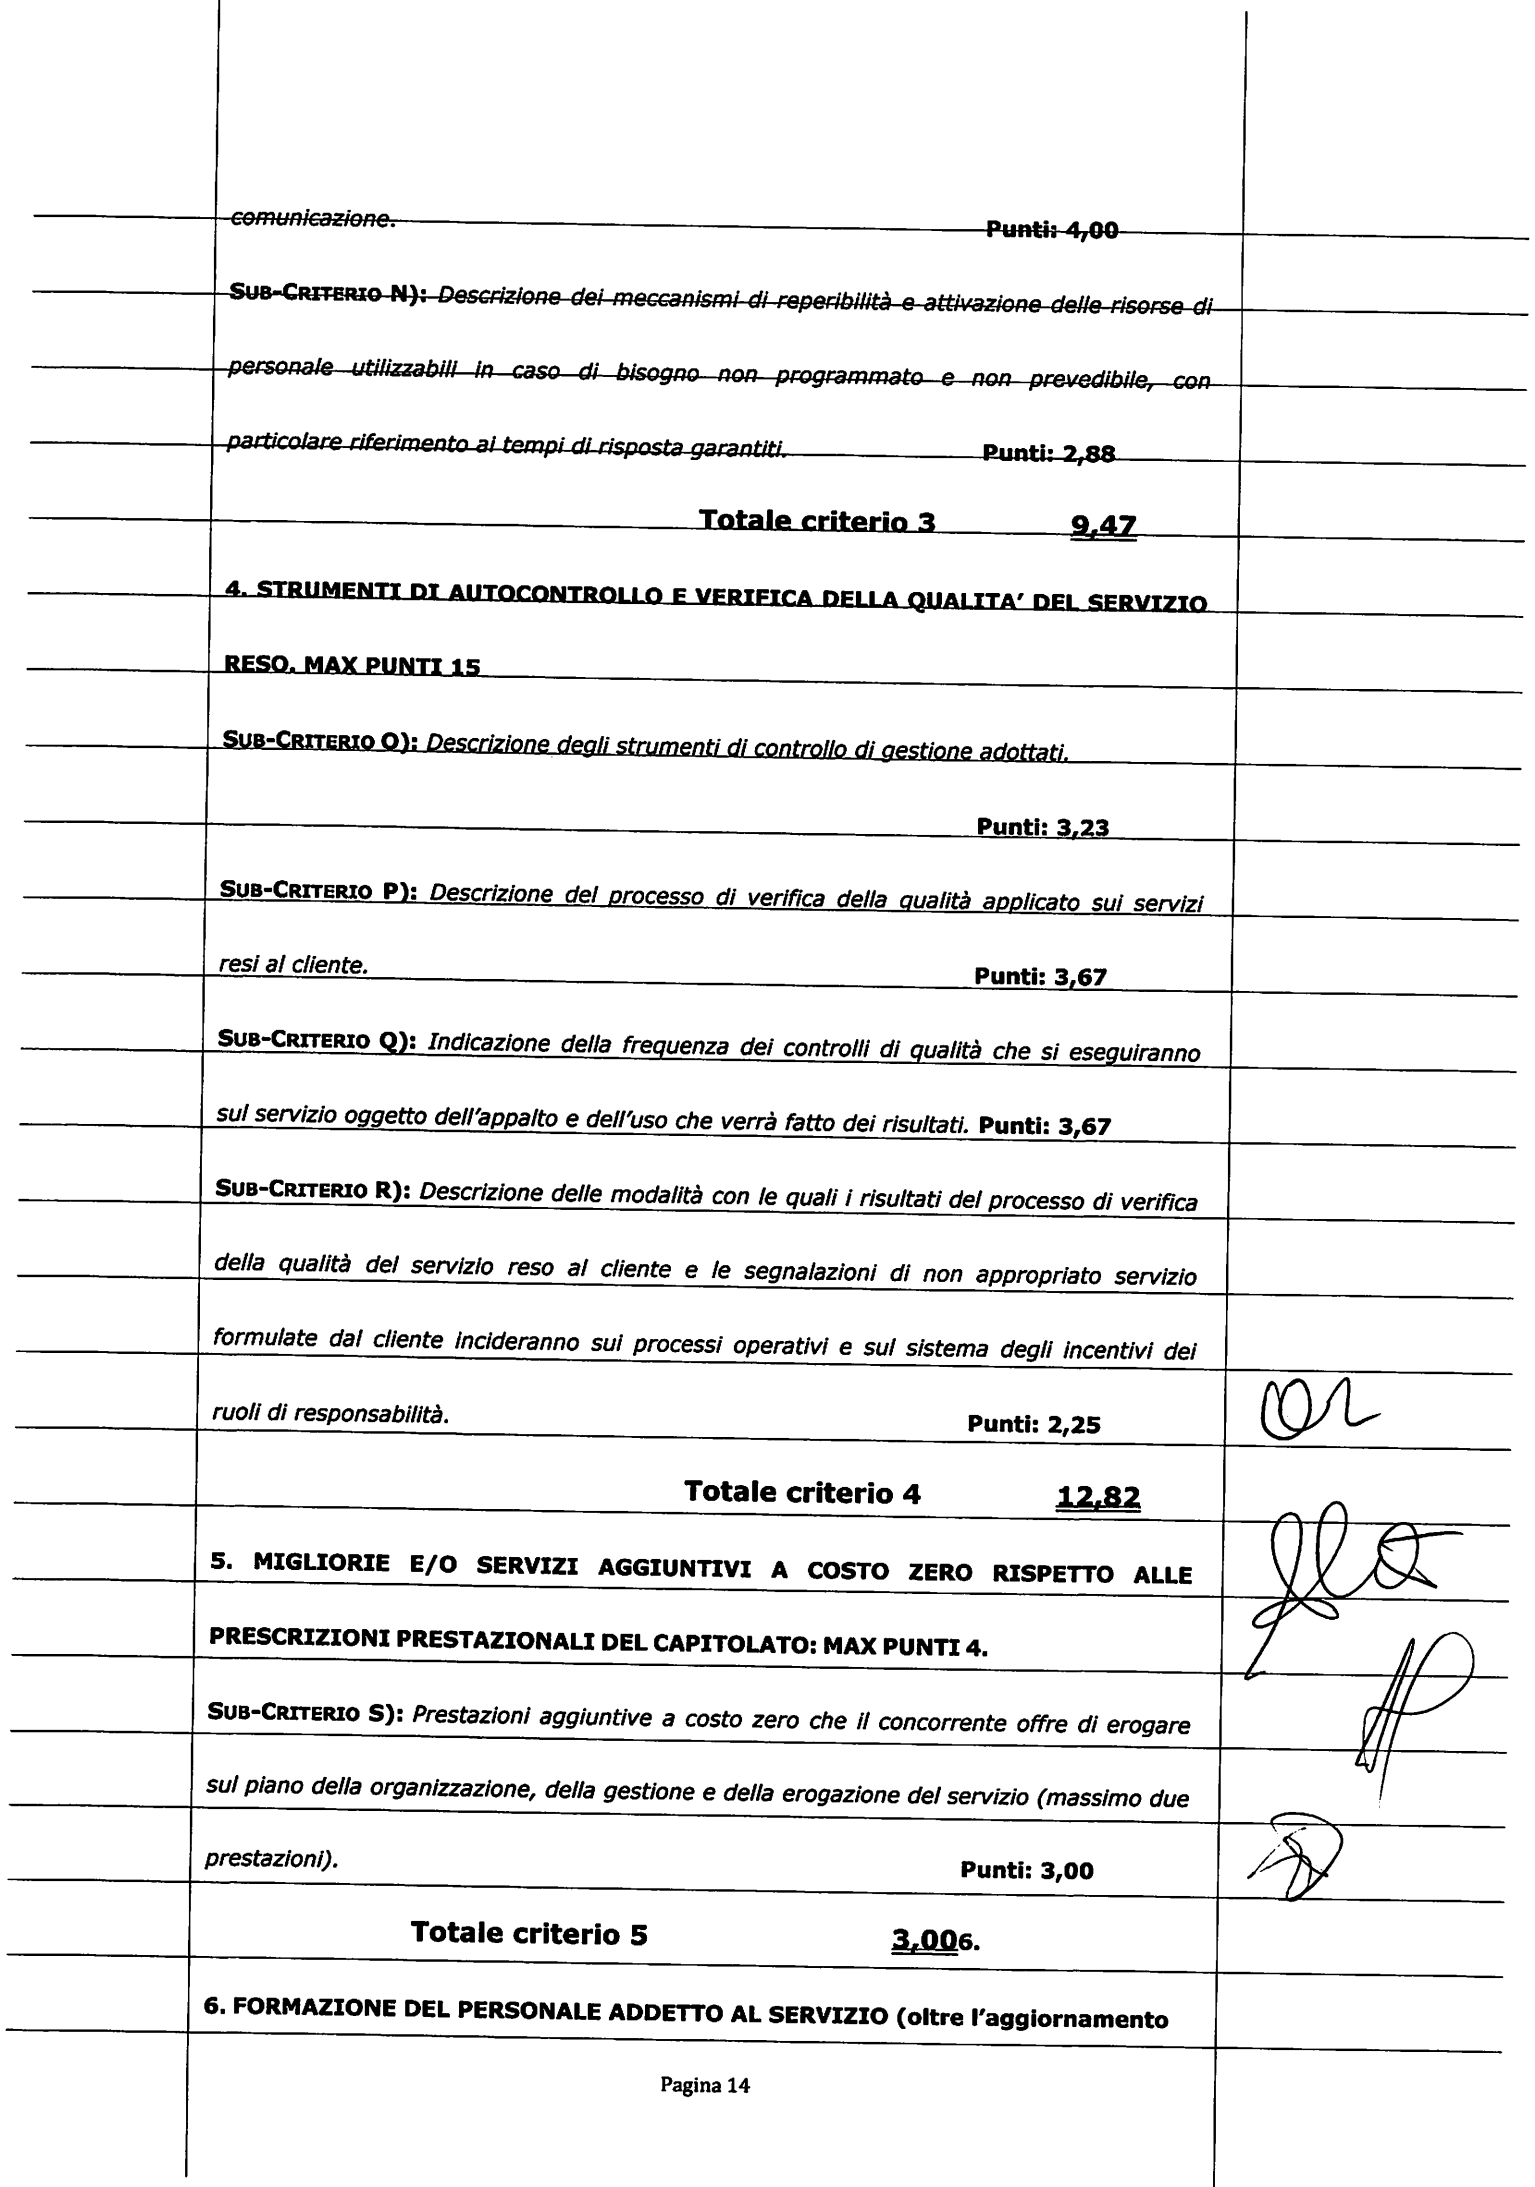 comunicazione. Punti: 4,00
SUB-CRITERIO N): Descrizione dei meccanismi di reperibilità e attivazione delle risorse di
personale utilizzabili in caso di bisogno non programmato e non prevedibile, con
particolare riferimento ai tempi di risposta garantiti. Punti: 2,88
Totale criterio 3 9,47
4. STRUMENTI DI AUTOCONTROLLO E VERIFICA DELLA QUALITA’ DEL SERVIZIO
RESO. MAX PUNTI 15
SUB-CRITERIO O): Descrizione degli strumenti di controllo di gestione adottati.
Punti: 3,23
SUB-CRITERIO P): Descrizione del processo di verifica della qualità applicato sui servizi
resi al cliente. Punti: 3,67
SUB-CRITERIO Q): Indicazione della frequenza dei controlli di qualità che si eseguiranno
sul servizio oggetto dell’appalto e dell’uso che verrà fatto dei risultati. Punti: 3,67
SUB-CRITERIO R): Descrizione delle modalità con le quali i risultati del processo di verifica
della qualità del servizio reso al cliente e le segnalazioni di non appropriato servizio
formulate dal cliente incideranno sui processi operativi e sul sistema degli incentivi dei
ruoli di responsabilità. Punti: 2,25
Totale criterio 4 12,82
5. MIGLIORIE E/O SERVIZI AGGIUNTIVI A COSTO ZERO RISPETTO ALLE
PRESCRIZIONI PRESTAZIONALI DEL CAPITOLATO: MAX PUNTI 4.
SUB-CRITERIO S): Prestazioni aggiuntive a costo zero che il concorrente offre di erogare
sul piano della organizzazione, della gestione e della erogazione del servizio (massimo due
prestazioni). Punti: 3,00
Totale criterio 5 3,006.
6. FORMAZIONE DEL PERSONALE ADDETTO AL SERVIZIO (oltre l’aggiornamento
Pagina 14